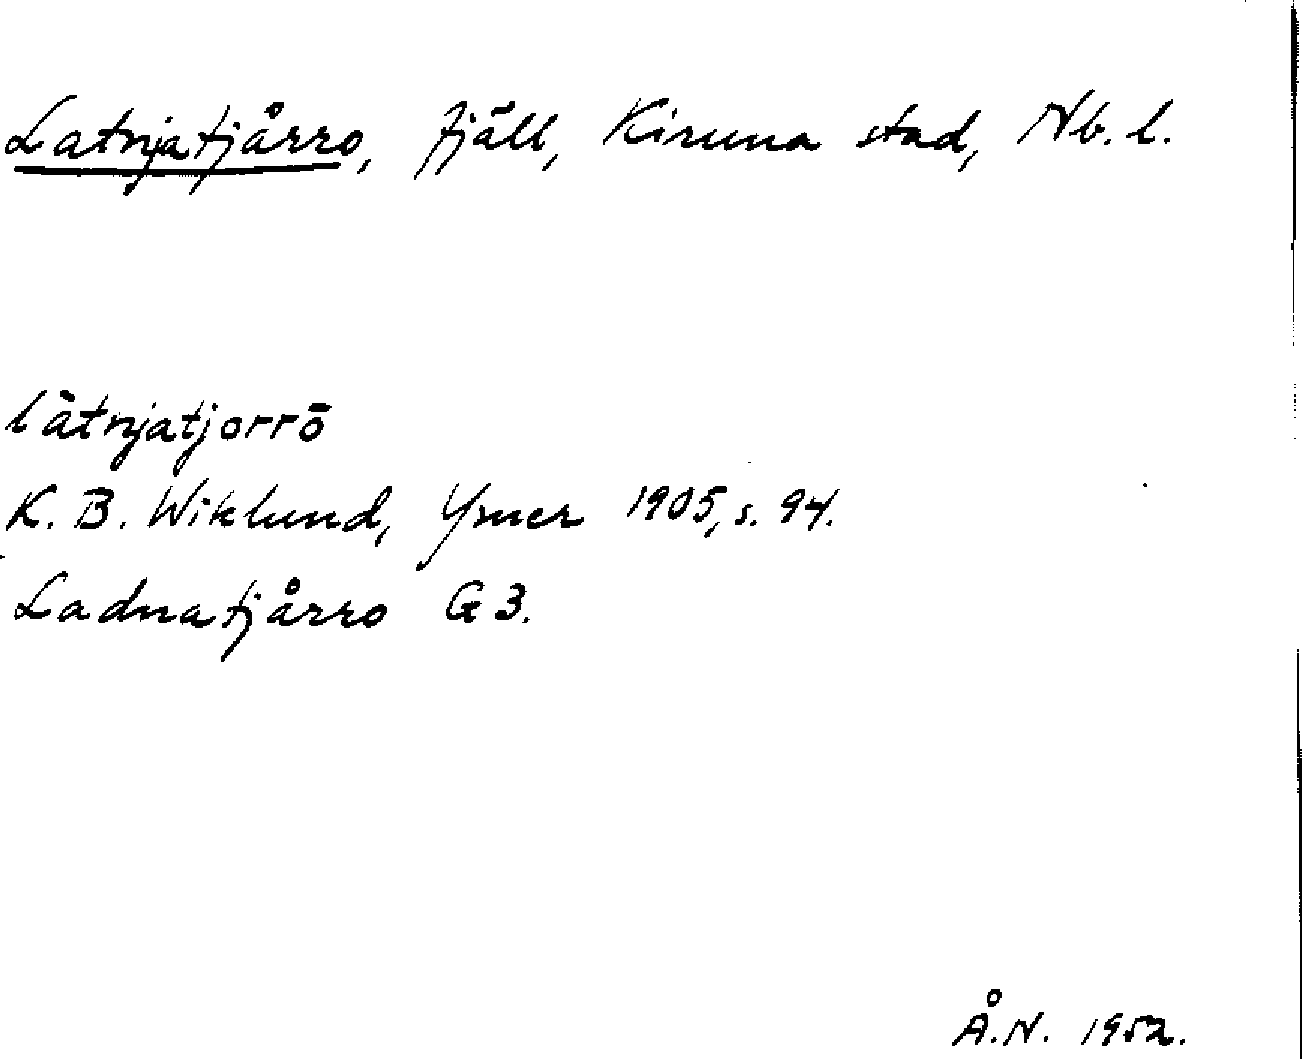 Latnjatjårro, fjäll, Kiruna stad, Nb. l.
lātnjatjorrō
K. B. Wiklund, Ymer 1905, s. 94.
Ladnatjårro G 3.
Å. N. 1952.